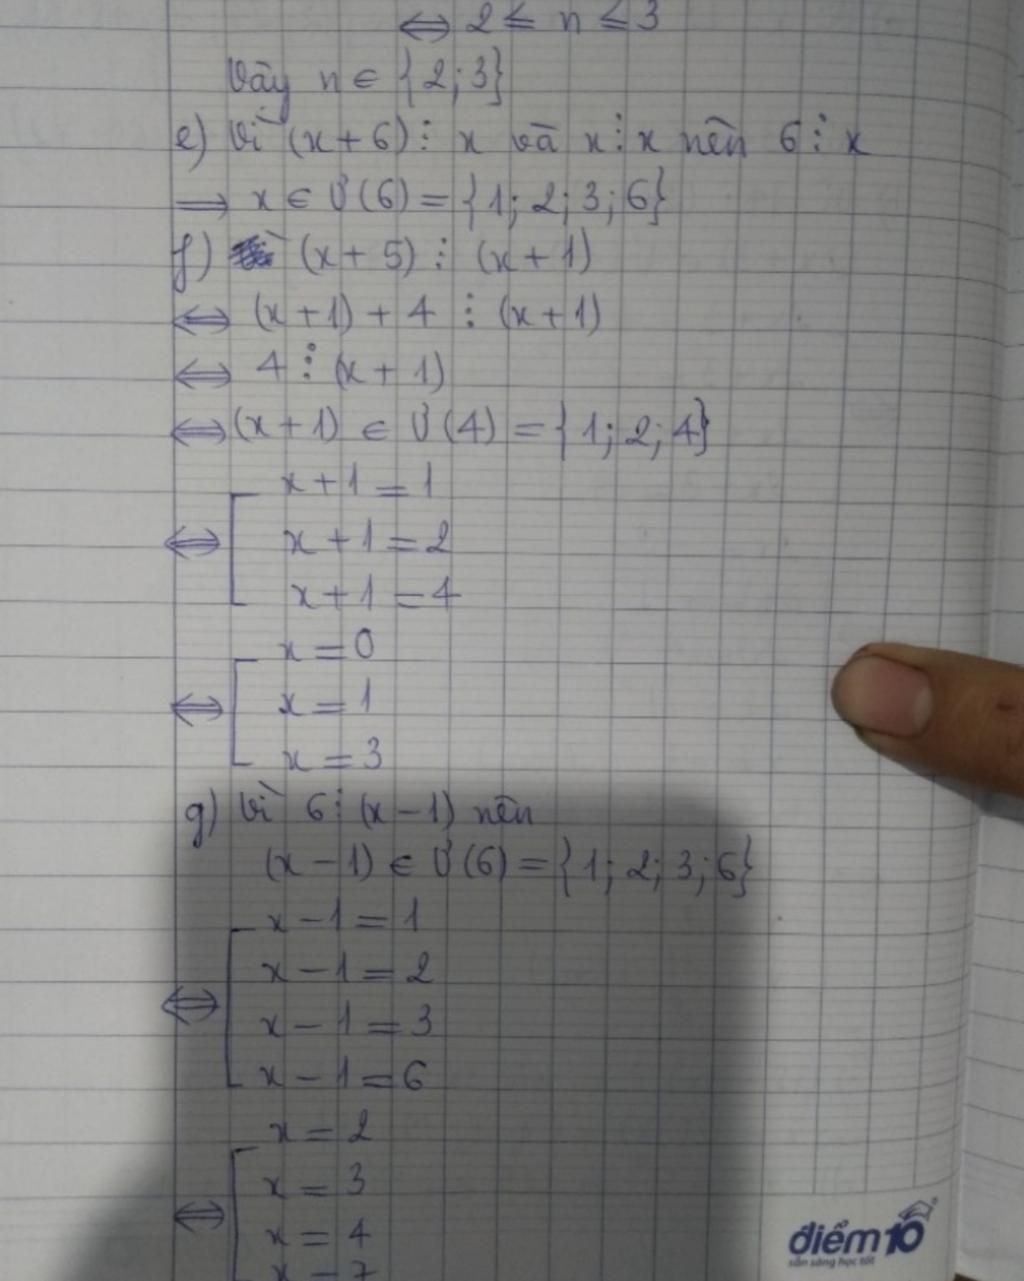 ⇔ 2 ≤ n ≤ 3
Vậy n ∈ {2; 3}
e) Vì (x + 6) ⋮ x và x ⋮ x nên 6 ⋮ x
⟹ x ∈ Ư(6) = {1; 2; 3; 6}
f) (x + 5) ⋮ (x + 1)
⇔ (x + 1) + 4 ⋮ (x + 1)
⇔ 4 ⋮ (x + 1)
⇔ (x + 1) ∈ Ư(4) = {1; 2; 4}
x + 1 = 1
⇔ [ x + 1 = 2
x + 1 = 4
x = 0
⇔ [ x = 1
x = 3
g) Vì 6 ⋮ (x − 1) nên
(x − 1) ∈ Ư(6) = {1; 2; 3; 6}
x − 1 = 1
x − 1 = 2
⇔ [ x − 1 = 3
x − 1 = 6
x = 2
x = 3
⇔ [ x = 4
x = 7
điểm10
sẵn sàng học tốt